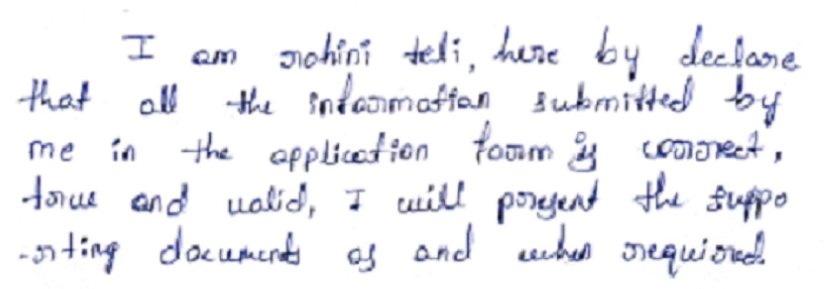 I am rohini teli, here by declare
that all the information submitted by
me in the application form is correct,
true and valid, I will present the suppo
-rting documents as and when required.